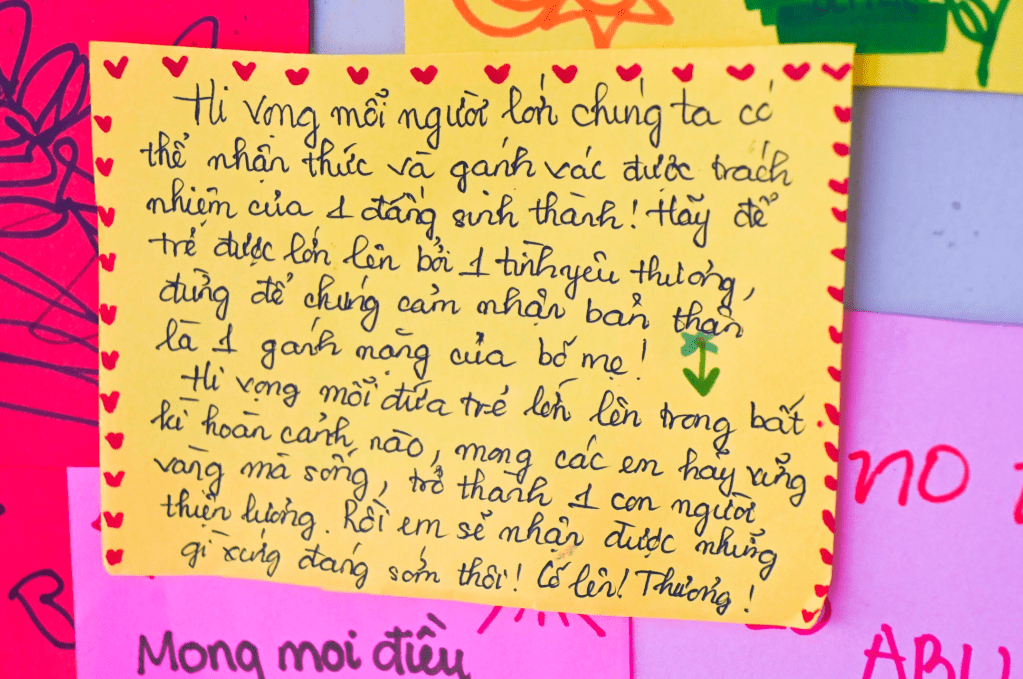 Hi vọng mỗi người lớn chúng ta có
thể nhận thức và gánh vác được trách
nhiệm của 1 đấng sinh thành! Hãy để
trẻ được lớn lên bởi 1 tình yêu thương,
đừng để chúng cảm nhận bản thân
là 1 gánh nặng của bố mẹ!
Hi vọng mỗi đứa trẻ lớn lên trong bất
kì hoàn cảnh nào, mong các em hãy vững
vàng mà sống, trở thành 1 con người
thiện lương. Rồi em sẽ nhận được những
gì xứng đáng sớm thôi! Cố lên! Thương!
NO
Mong mọi điều
ABU